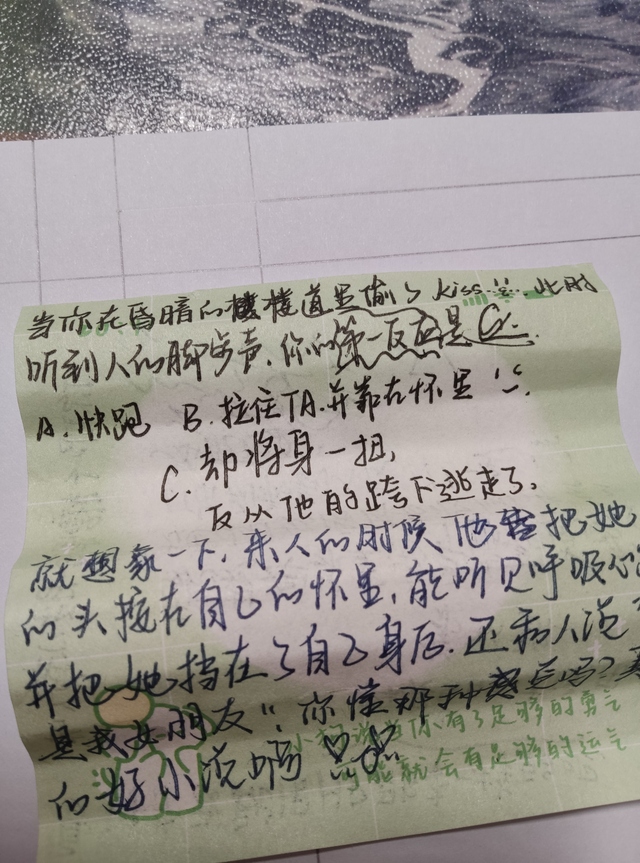 当你在昏暗的楼楼道里偷了kiss 此时
听到人们脚步声.你的第一反应是C.
A.快跑 B.拉住TA.并靠在怀里
C.却将身一扭,
反从他的跨下逃走了.
就想象一下,来人的时候他轻把她
的头按在自己的怀里,能听见呼吸
并把她挡在了自己身后.还和人说
是我女朋友" 你懂那种感觉吗?
的好小说啊
小 说当你有了足够的勇气
可能就会有足够的运气